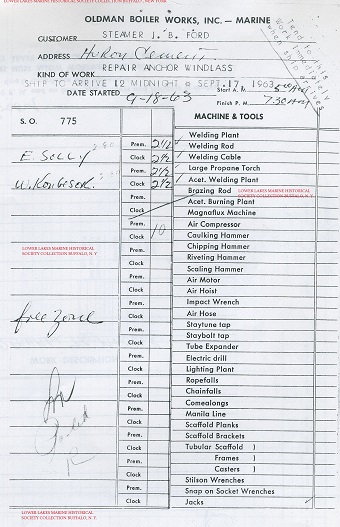 LOWER LAKES MARINE HISTORICAL SOCIETY COLLECTION BUFFALO, NEW YORK
OLDMAN BOILER WORKS, INC.— MARINE
CUSTOMER STEAMER J. B. FORD
ADDRESS Huron Cement
KIND OF WORK REPAIR ANCHOR WINDLASS
SHIP TO ARRIVE 12 MIDNIGHT @ SEPT. 17, 1963
DATE STARTED 9-18-63
Start A. M. 5-00 AM
Finish P. M. 7.30 AM
Tend to this work immediately when ship arrives
S. O. 775
MACHINE & TOOLS
Prem. 2 1/2
Welding Plant
E. Solly Clock 2 1/2
Welding Rod
Welding Cable
Prem. 2 1/2
Large Propane Torch
Clock 2 1/2
Acet. Welding Plant
Prem.
Brazing Rod
LOWER LAKES MARINE HISTORICAL
SOCIETY COLLECTION BUFFALO, N. Y
Clock
Acet. Burning Plant
Prem.
Magnaflux Machine
Clock 10
Air Compressor
Caulking Hammer
LOWER LAKES MARINE HISTORICAL
SOCIETY COLLECTION BUFFALO, N. Y
Prem.
Chipping Hammer
Clock
Riveting Hammer
Prem.
Scaling Hammer
Clock
Air Motor
Prem.
Air Hoist
Clock
Impact Wrench
free zone
Prem.
Air Hose
Clock
Staytune tap
Staybolt tap
Prem.
Tube Expander
Clock
Electric drill
Prem.
Lighting Plant
Clock
Ropefalls
Prem.
Chainfalls
Clock
Comealongs
Prem.
Manila Line
Clock
Scaffold Planks
Prem.
Scaffold Brackets
Clock
Tubular Scaffold )
Prem.
Frames )
Clock
Casters )
Prem.
Stilson Wrenches
Clock
Snap on Socket Wrenches
Jacks
LOWER LAKES MARINE HISTORICAL
SOCIETY COLLECTION BUFFALO, N. Y